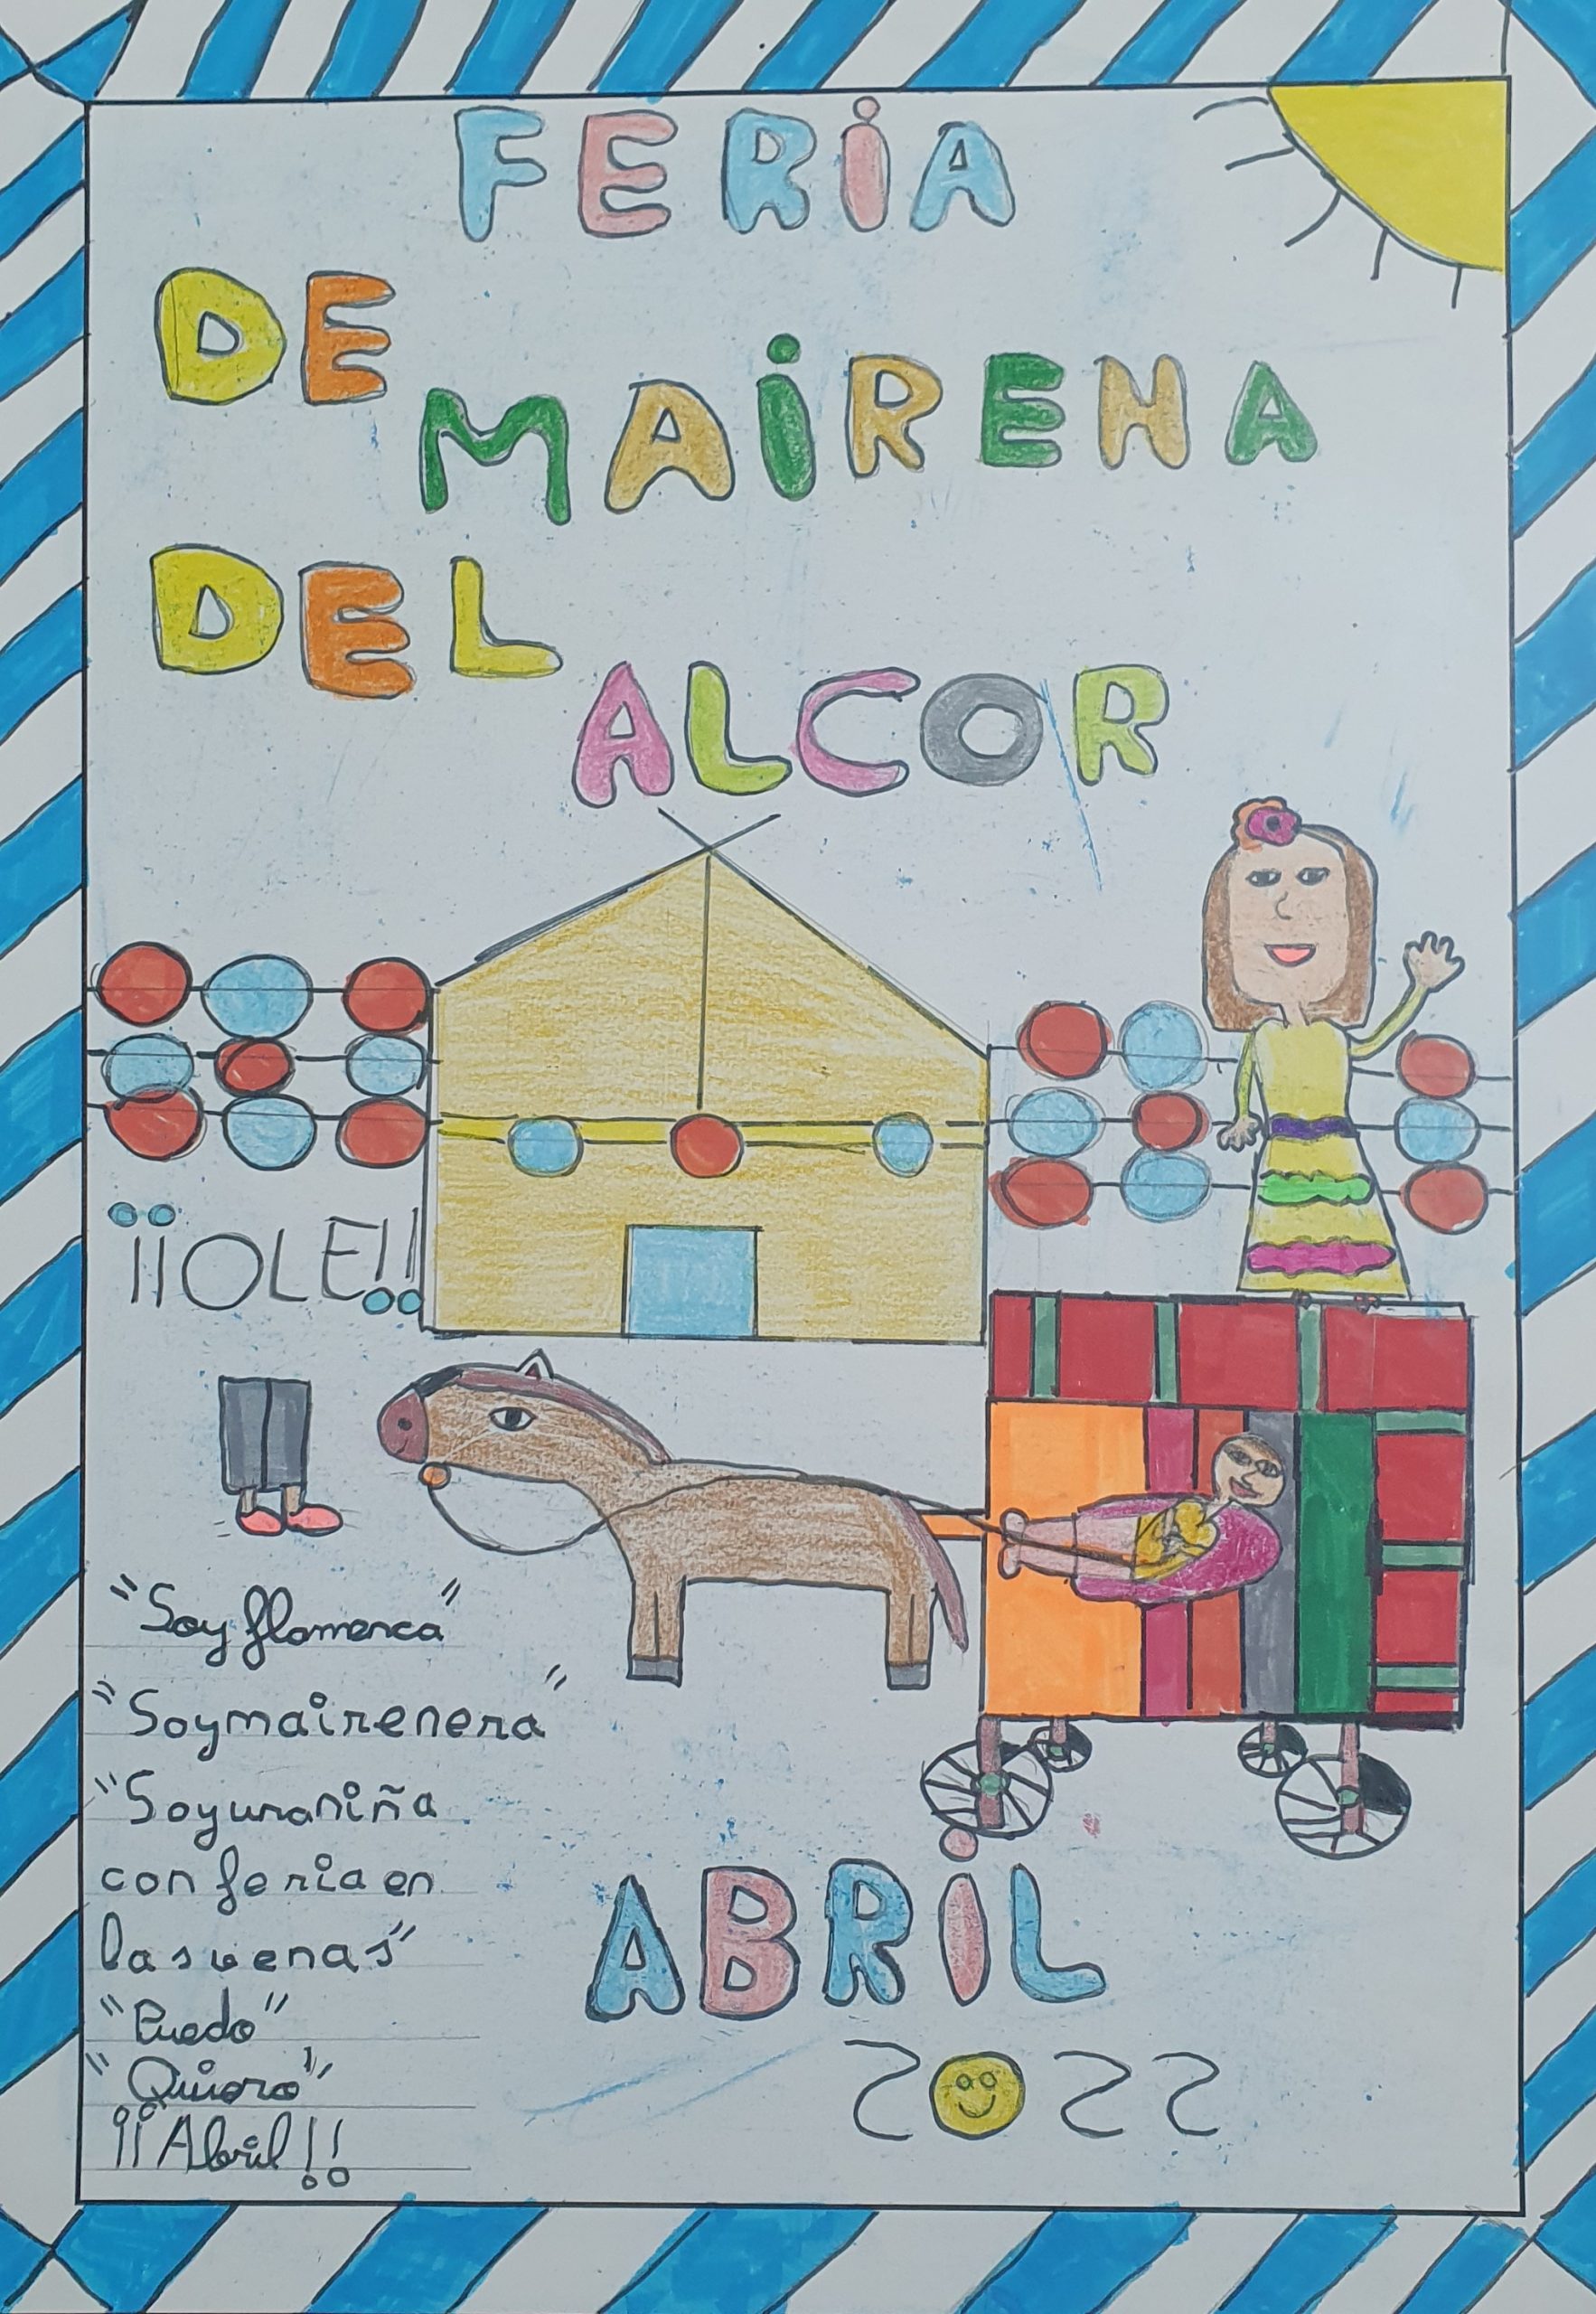 FERiA
DE
MAiRENA
DEL
ALCOR
¡¡OLE!!
"Soy flamenca"
"Soy mairenera"
"Soy una niña
con feria en
las venas"
"Puedo"
"Quiero"
¡¡Abril!!
ABRiL
2022